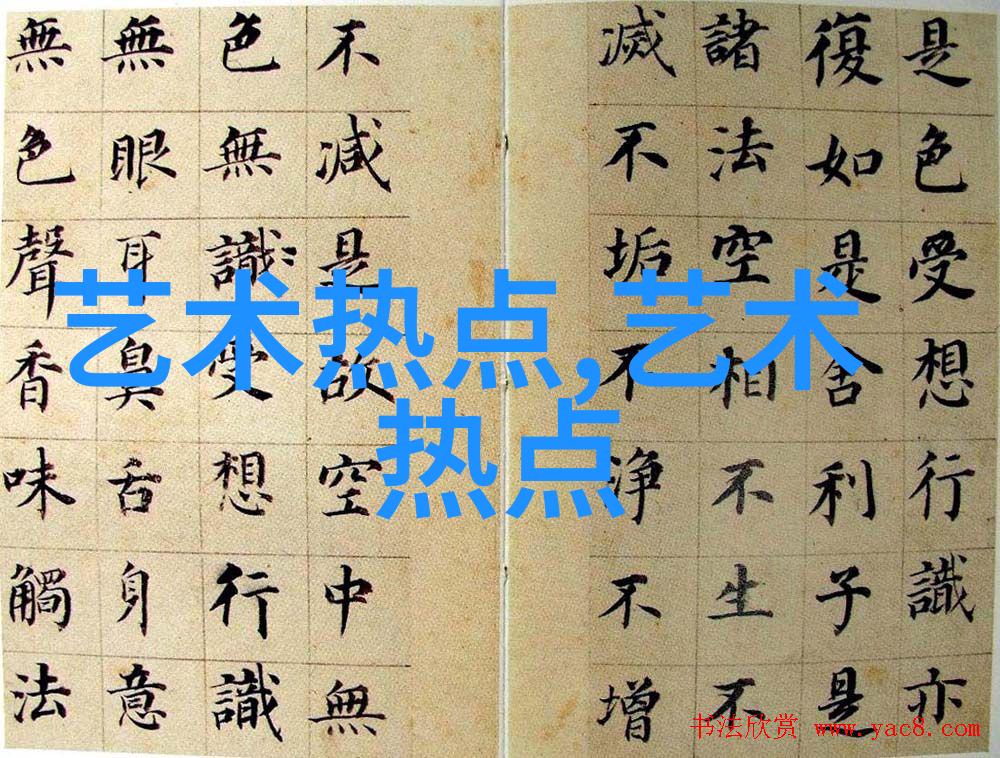 是色受想行識亦
復如是舍利子是
諸法空相不生不
滅不垢不淨不增
不減是故空中無
色無識受想行識
無眼耳鼻舌身意
無色聲香味觸法
艺术热点,艺术
热点
书法欣赏 www.yac8.com